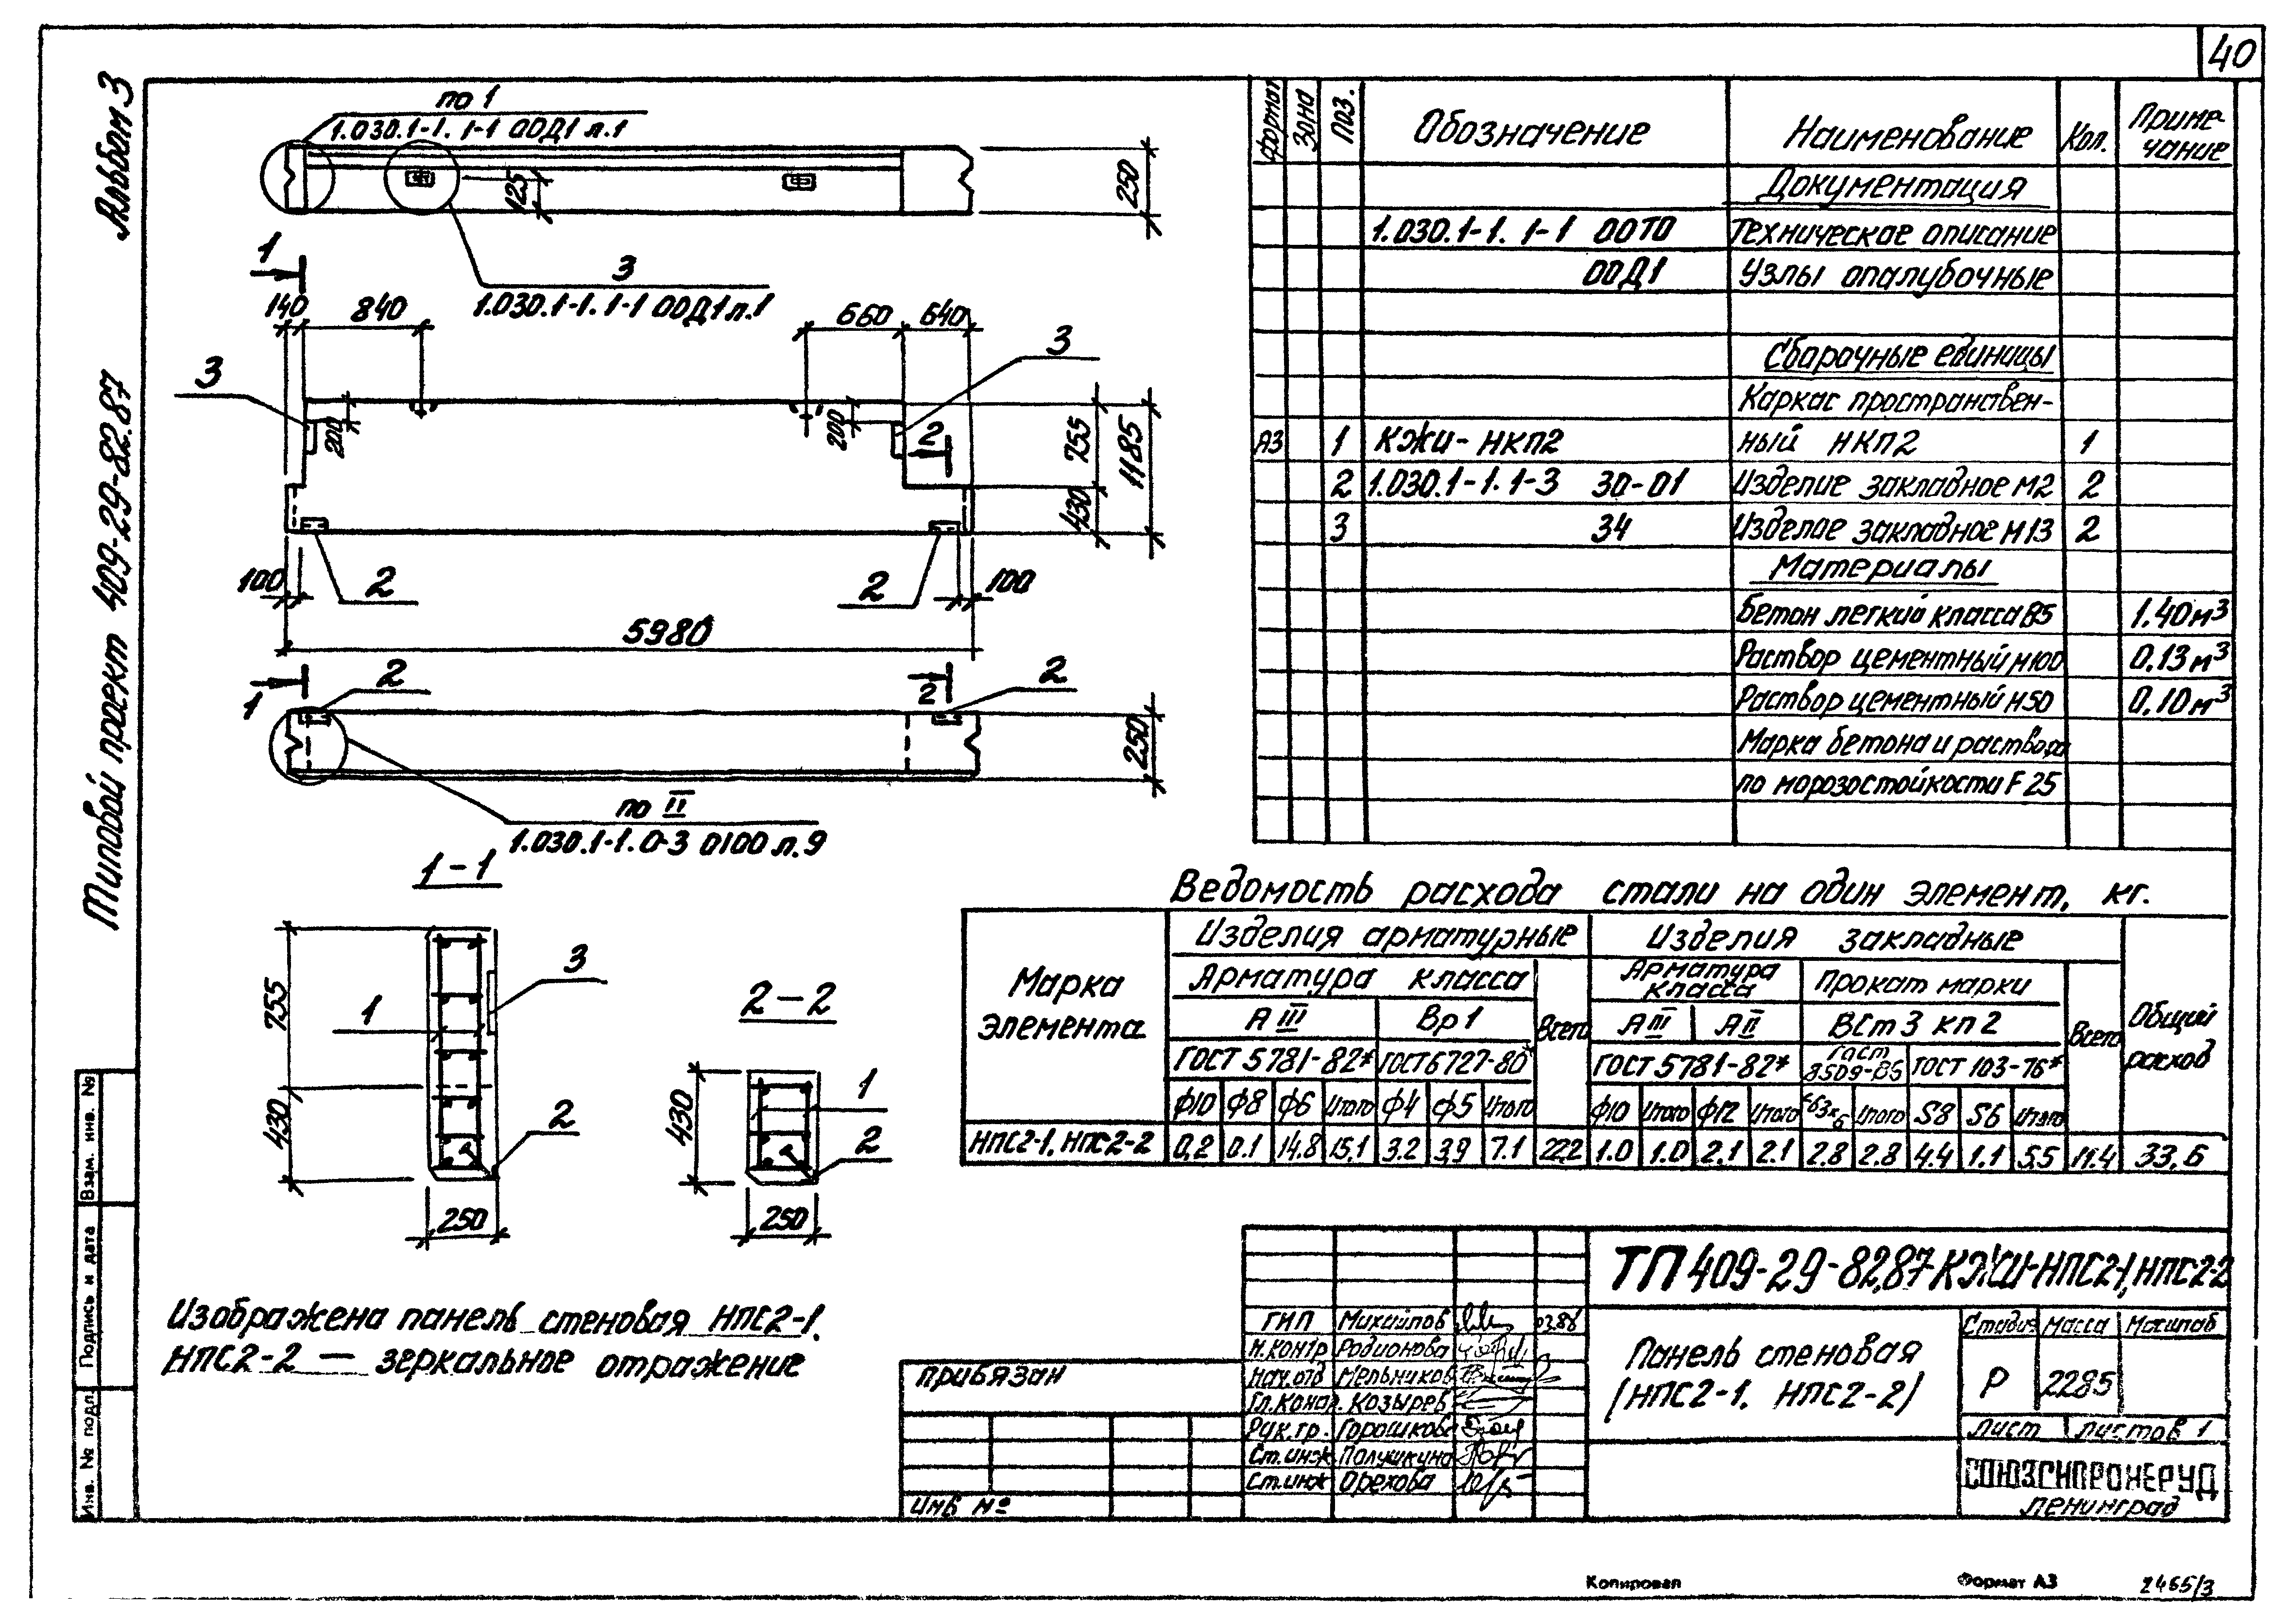 40
Альбом 3
Типовой проект 409-29-82.87
по 1
1.030.1-1. 1-1 00Д1 л.1
125
250
3
1.030.1-1. 1-1 00Д1 л.1
1
140
840
660
640
3
3
200
200
2
755
1185
430
100
2
2
100
5980
1
2
2
2
250
по II
1.030.1-1.0-3 0100 л.9
1-1
755
430
1
3
2
250
2-2
430
1
2
250
Изображена панель стеновая НПС2-1.
НПС2-2 — зеркальное отражение
Формат Зона Поз. Обозначение Наименование Кол. Приме-чание
Документация
1.030.1-1. 1-1 00Т0 Техническое описание
00Д1 Узлы опалубочные
Сборочные единицы
Каркас пространствен-
А3 1 КЖИ-НКП2 ный НКП2 1
2 1.030.1-1. 1-3 30-01 Изделие закладное М2 2
3 34 Изделие закладное М13 2
Материалы
Бетон легкий класса В5 1.40 м3
Раствор цементный М100 0.13 м3
Раствор цементный М50 0.10 м3
Марка бетона и раствора
по морозостойкости F 25
Ведомость расхода стали на один элемент, кг.
Марка элемента Изделия арматурные Изделия закладные Общий расход
Арматура класса Всего Арматура класса Прокат марки Всего
А III Вр1 А III А II ВСт3 кп2
ГОСТ 5781-82* ГОСТ 6727-80* ГОСТ 5781-82* ГОСТ 8509-86 ГОСТ 103-76*
ф10 ф8 ф6 Итого ф4 ф5 Итого ф10 Итого ф12 Итого Итого S8 S6 Итого
НПС2-1, НПС2-2 0,2 0.1 14,8 15,1 3.2 3,9 7.1 22,2 1.0 1.0 2.1 2.1 2.8 2.8 4.4 1.1 5.5 11.4 33.6
ТП 409-29-82.87-КЖИ-НПС2-1, НПС2-2
ГИП Михайлов 03.88
Н.контр Родионова
Нач.отд Мельников
Гл.констр. Козырев
Рук.гр. Горошкова
Ст.инж Полушкина
Ст.инж Орехова
Панель стеновая
(НПС2-1. НПС2-2)
Стадия Масса Масштаб
Р 2285
Лист Листов 1
СОЮЗГИПРОНЕРУД
Ленинград
Привязан
Инв №
Взам. инв. №
Подпись и дата
Инв. № подл.
Копировал
Формат А3
2465/3